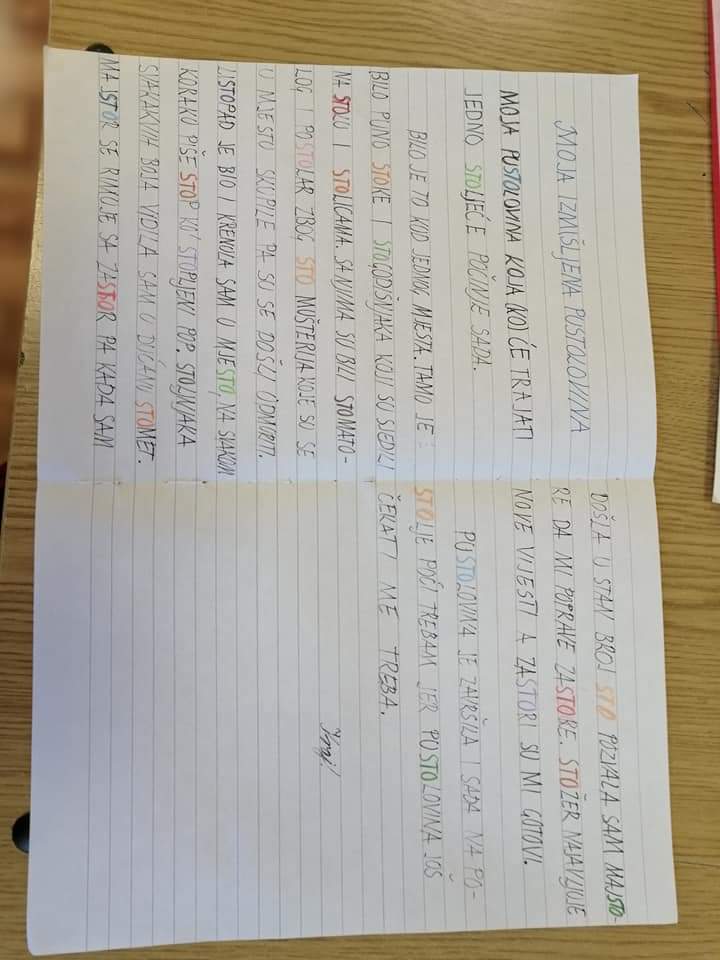 MOJA IZMIŠLJENA PUSTOLOVINA
MOJA PUSTOLOVINA KOJA KOJ ĆE TRAJATI
JEDNO STOLJEĆE POČINJE SADA.
BILO JE TO KOD JEDNOG MJESTA. TAMO JE
BILO PUNO STOKE I STOGODIŠNJAKA KOJI SU SJEDILI
NA STOLU I STOLICAMA. SA NJIMA SU BILI STOMATO-
LOG I POSTOLAR ZBOG STO MUŠTERIJA KOJE SU SE
U MJESTU SKUPILE PA SU SE DOŠLI ODMORITI.
LISTOPAD JE BIO I KRENULA SAM U MJESTO, NA SVAKOM
KORAKU PIŠE STOP KO' STOPLJENI POP. STOLNJAKA
SVAKAKVIH BOJA VIDILA SAM U DUĆANU STOMET.
MAJSTOR SE RIMUJE SA ZASTOR PA KADA SAM
DOŠLA U STAN BROJ STO POZVALA SAM MAJSTO-
RE DA MI POPRAVE ZASTORE. STOŽER NAJAVLJUJE
NOVE VIJESTI A ZASTORI SU MI GOTOVI.
PUSTOLOVINA JE ZAVRŠILA I SADA NA PO-
STOLJE POĆI TREBAM JER PUSTOLOVINA JOŠ
ČEKATI ME TREBA.
Kraj!